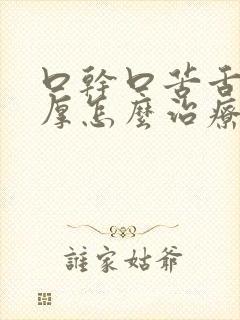 口幹口苦舌
厚怎麼治療
誰家姑爺